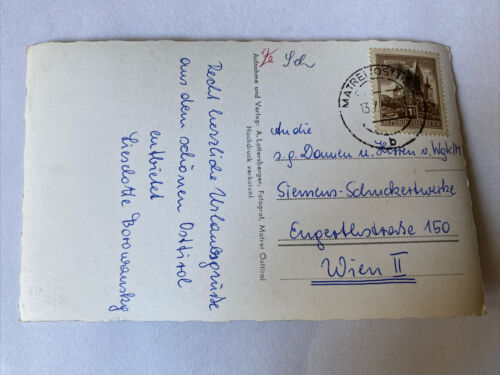 Recht herzliche Urlaubsgrüße
aus dem schönen Osttirol
entbietet
Lieselotte Borowansky
Aufnahme und Verlag: A. Lottersberger, Fotograf, Matrei Osttirol
Nachdruck verboten!
Sch
MATREI OSTTIROL
13.
b
An die
s.g. Damen u. Herren v.
Siemens-Schuckertwerke
Engerthstraße 150
Wien II